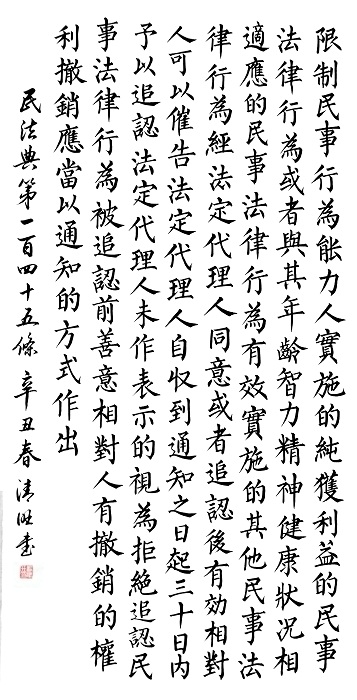 限制民事行為能力人實施的純獲利益的民事
法律行為或者與其年齡智力精神健康狀况相
適應的民事法律行為有效實施的其他民事法
律行為經法定代理人同意或者追認後有効相對
人可以催告法定代理人自収到通知之日起三十日内
予以追認法定代理人未作表示的視為拒絶追認民
事法律行為被追認前善意相對人有撤銷的權
利撤銷應當以通知的方式作出
民法典第一百四十五條 辛丑春 清